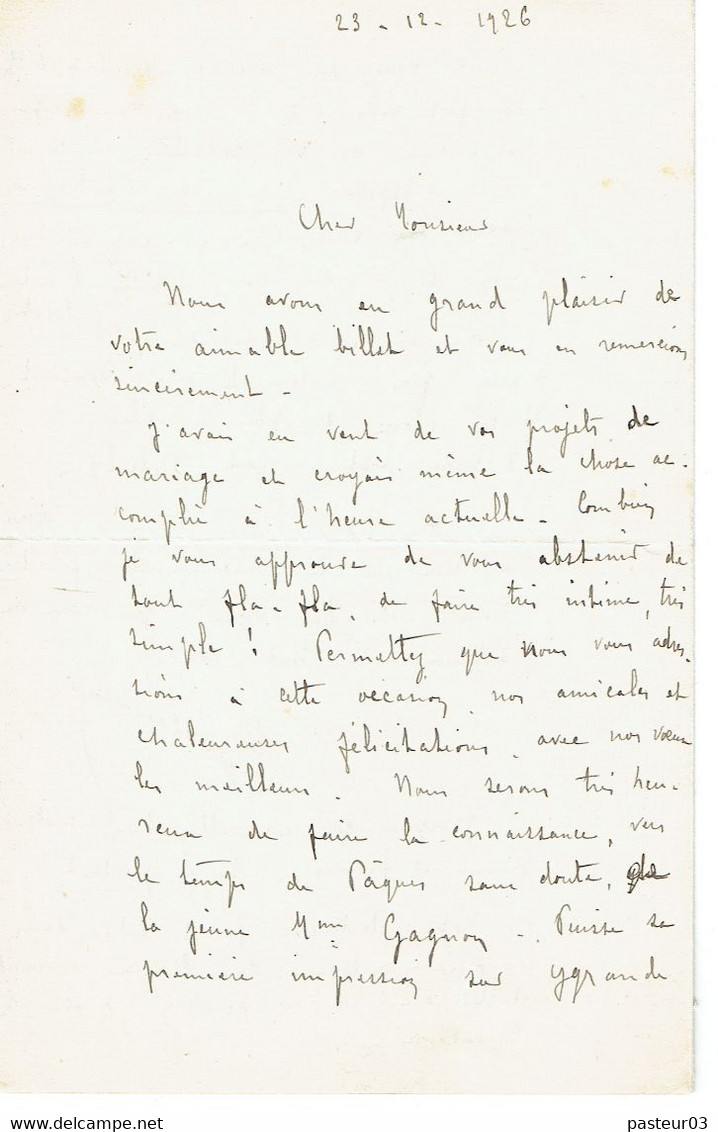 23 - 12 - 1926
Cher Monsieur
Nous avons eu grand plaisir de
votre aimable billet et vous en remercions
sincèrement -
J'avais eu vent de vos projets de
mariage et croyais même la chose ac-
complie à l'heure actuelle - Combien
je vous approuve de vous abstenir de
tout fla-fla, de faire très intime, très
simple ! Permettez que nous vous adres-
sions à cette occasion nos amicales et
chaleureuses félicitations, avec nos vœux
les meilleurs. Nous serons très heu-
reux de faire la connaissance, vers
le temps de Pâques sans doute, de
la jeune Mme Gagnon -. Puisse sa
première impression sur Ygrande
pasteur03